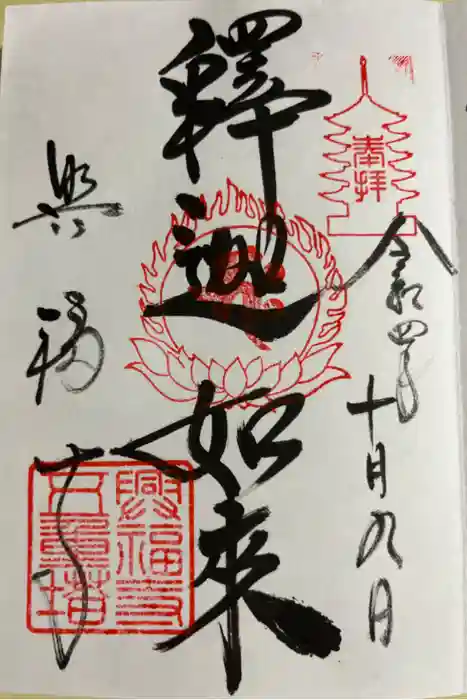 奉拝
令和四年十月九日
釋迦如来
興福寺
興福寺
五重塔